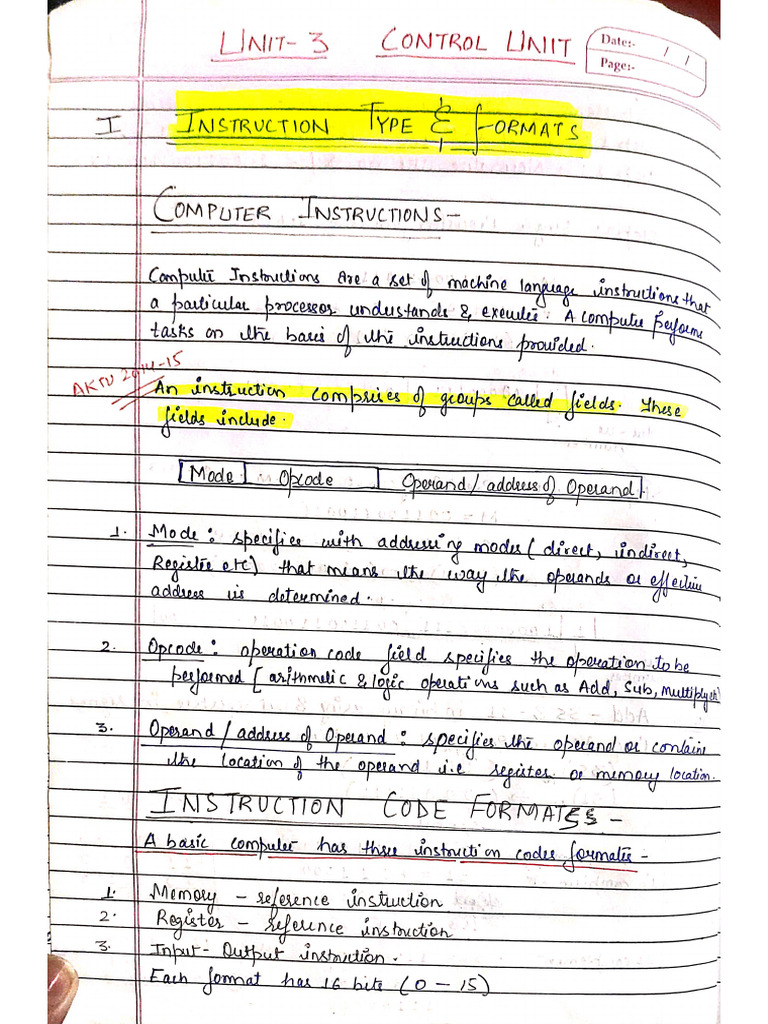 UNIT-3 CONTROL UNIIT
Date:- / /
Page:-
I INSTRUCTION TYPE & FORMATS
COMPUTER INSTRUCTIONS-
Computer Instructions are a set of machine language instructions that
a particular processor understands & executes. A computer performs
tasks on the basis of the instructions provided.
AKTU 2014-15
An instruction comprises of groups called fields. These
fields include.
Mode Opcode Operand / address of Operand
1. Mode: specifies with addressing modes (direct, indirect,
Register etc) that means the way the operands or effective
address is determined.
2. Opcode: operation code field specifies the operation to be
performed [arithmetic & logic operations such as Add, Sub, Multiply etc]
3. Operand / address of Operand: specifies the operand or contains
the location of the operand i.e register or memory location.
INSTRUCTION CODE FORMATSS-
A basic computer has three instruction codes formates-
1. Memory - reference instruction
2. Register - reference instruction
3. Input-Output instruction.
Each format has 16 bits (0 - 15)